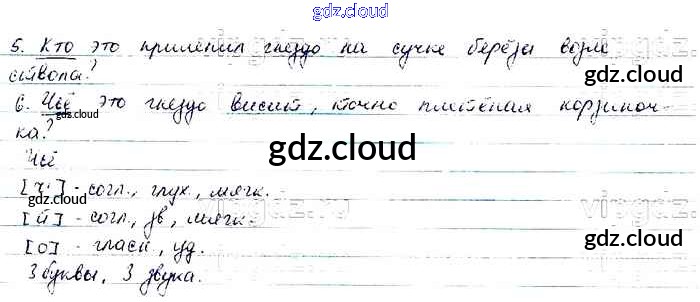 gdz.cloud
5. Кто это прилепил гнездо на сучке берёзы возле
ствола?
gdz.cloud
6. Чьё это гнездо висит, точно плетёная корзиноч-
gdz.cloud
ка?
Чьё
gdz.cloud
[ч'] - согл., глух., мягк.
[й'] - согл., зв., мягк.
[о] - гласн., уд.
gdz.cloud
gdz.cloud
3 буквы, 3 звука.